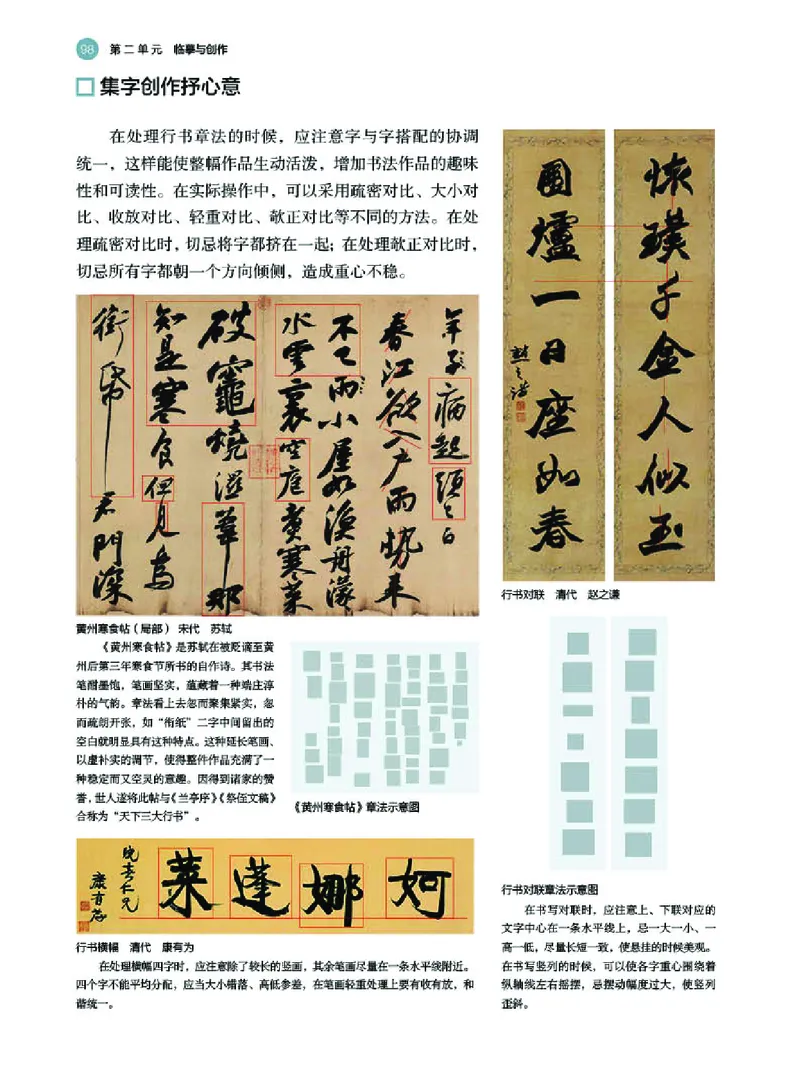 98 第二单元 临摹与创作
集字创作抒心意
在处理行书章法的时候，应注意字与字搭配的协调
统一，这样能使整幅作品生动活泼，增加书法作品的趣味
性和可读性。在实际操作中，可以采用疏密对比、大小对
比、收放对比、轻重对比、欹正对比等不同的方法。在处
理疏密对比时，切忌将字都挤在一起；在处理欹正对比时，
切忌所有字都朝一个方向倾侧，造成重心不稳。
年子病起须已白
春江欲入户雨势来
不已雨小屋如渔舟濛
水云里空庖煮寒菜
破竈烧湿苇那
知是寒食但见乌
衔帋君门深
黄州寒食帖（局部） 宋代 苏轼
《黄州寒食帖》是苏轼在被贬谪至黄
州后第三年寒食节所书的自作诗。其书法
笔酣墨饱，笔画坚实，蕴藏着一种端庄淳
朴的气韵。章法看上去忽而聚集紧实，忽
而疏朗开张，如“衔纸”二字中间留出的
空白就明显具有这种特点。这种延长笔画、
以虚补实的调节，使得整件作品充满了一
种稳定而又空灵的意趣。因得到诸家的赞
誉，世人遂将此帖与《兰亭序》《祭侄文稿》
合称为“天下三大行书”。
《黄州寒食帖》章法示意图
莱蓬娜妸
晚香仁兄
康有为
行书横幅 清代 康有为
在处理横幅四字时，应注意除了较长的竖画，其余笔画尽量在一条水平线附近。
四个字不能平均分配，应当大小错落、高低参差，在笔画轻重处理上要有收有放，和
谐统一。
怀璞千金人似玉
围炉一日座如春
赵之谦
行书对联 清代 赵之谦
行书对联章法示意图
在书写对联时，应注意上、下联对应的
文字中心在一条水平线上，忌一大一小、一
高一低，尽量长短一致，使悬挂的时候美观。
在书写竖列的时候，可以使各字重心围绕着
纵轴线左右摇摆，忌摆动幅度过大，使竖列
歪斜。